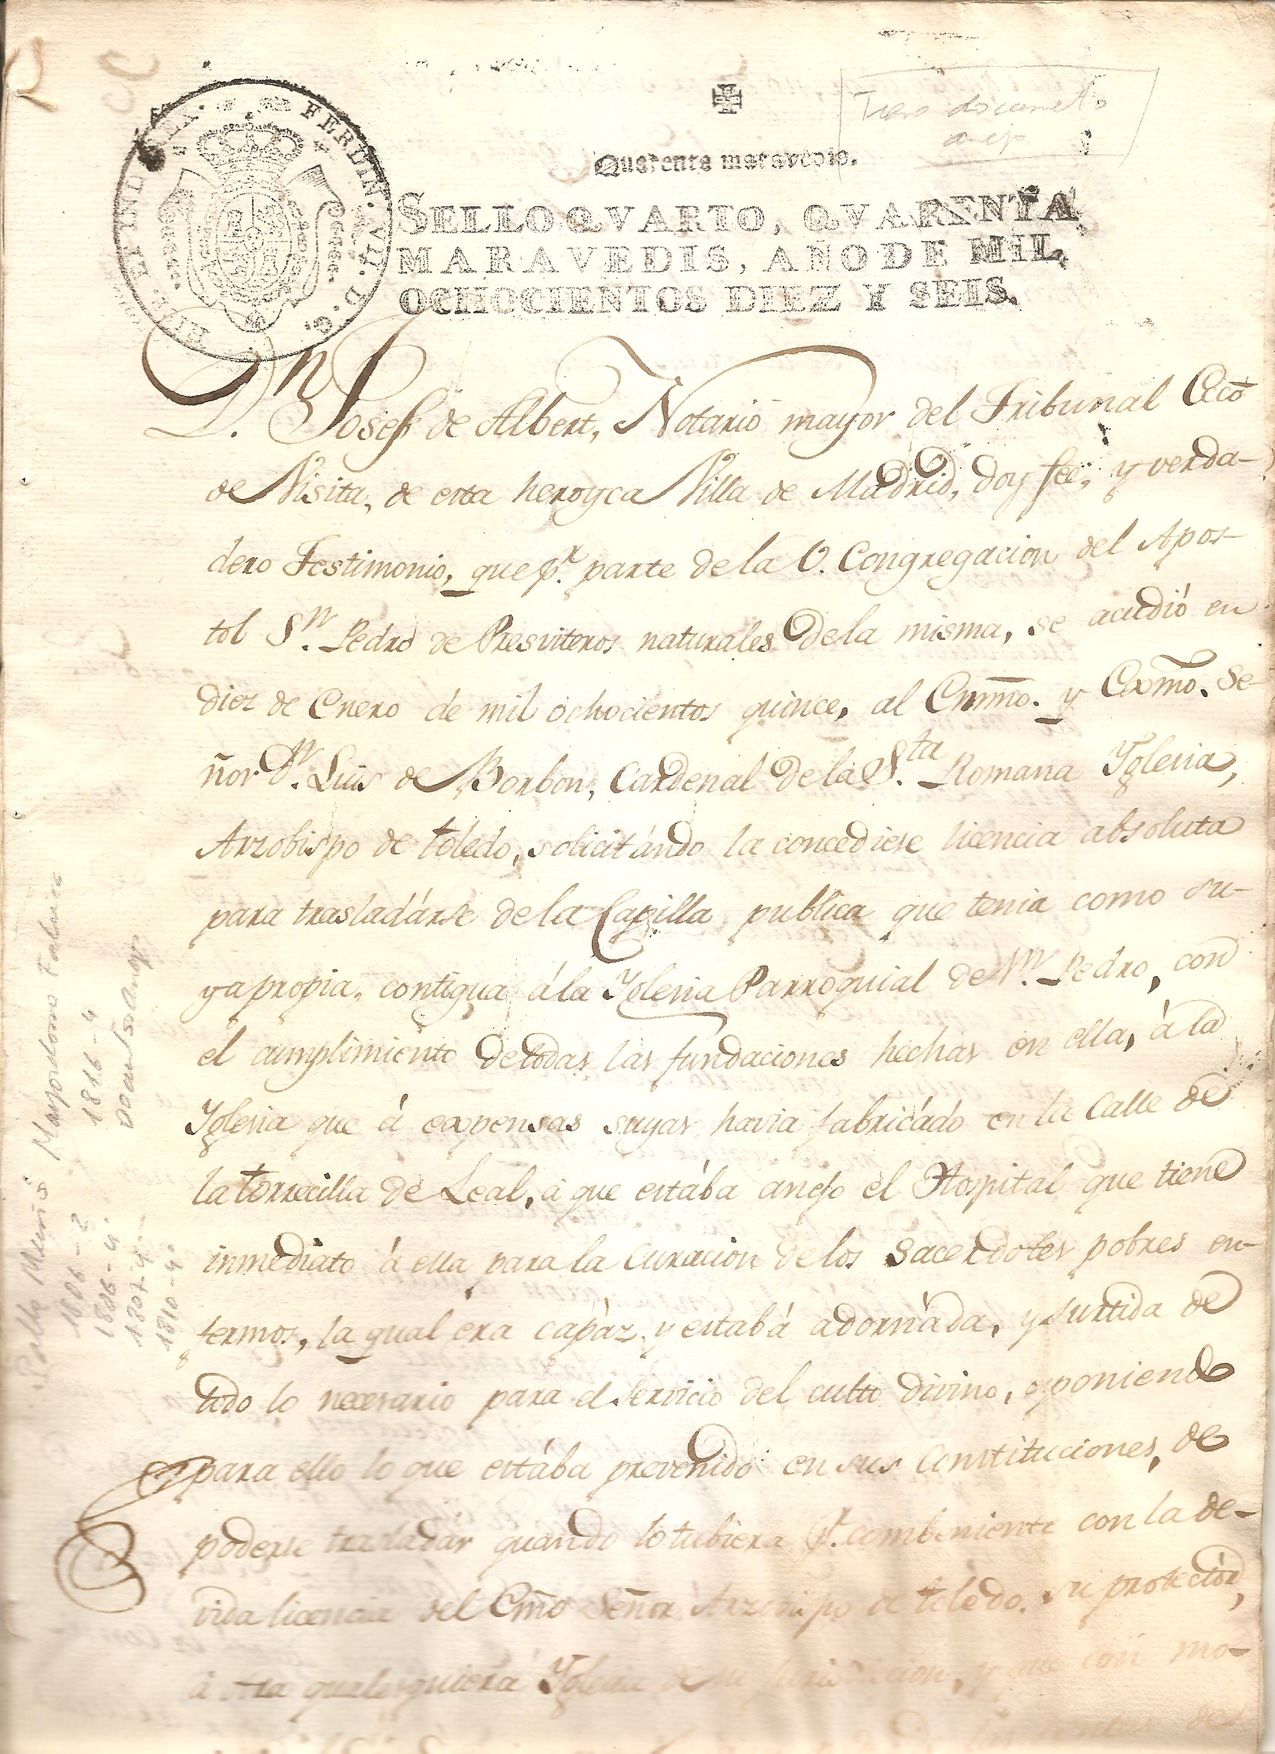 FERDIN. VII. D. G. HISP. ET IND. REX.
Quarenta maravedis.
SELLO QVARTO, QVARENTA
MARAVEDIS, AÑO DE MIL
OCHOCIENTOS DIEZ Y SEIS.
Dn. Josef de Albert, Notario mayor del Tribunal Ecco
de Visita, de esta heroyca Villa de Madrid, doy fee, y verda-
dero Testimonio, que pr. parte de la V. Congregacion del Apos-
tol Sn. Pedro de Presviteros naturales de la misma, se acudió en
diez de Enero de mil ochocientos quince, al Emmo. y Exmo. Se-
ñor Dn. Luis de Borbon, Cardenal de la Sta. Romana Yglesia,
Arzobispo de Toledo, solicitándo la concediese licencia absoluta
para trasladárse de la Capilla publica que tenia como su-
ya propia, contigua á la Yglesia Parroquial de Sn. Pedro, con
el cumplimiento de todas las fundaciones hechas en ella, á la
Yglesia que á expensas suyas havia fabricádo en la Calle de
la Torrecilla de Leal, á que estába anejo el Hospital que tiene
inmediato á ella para la curacion de los Sacerdotes pobres en-
fermos, la qual era capáz, y estabá adornáda, y surtida de
todo lo necesario para el servicio del culto divino, exponiendo
para ello lo que estába prevenido en sus Constituciones, de
poderse trasladár quando lo tubiera pr. combeniente con la de-
vida licencia del Emo Señor Arzobispo de Toledo, su protectór,
á otra qualesquiera Yglesia de su Jurisdiccion, y que con mo-
Mayordomo
1816-4
1806-2
1806-4
1807-4
1810-4